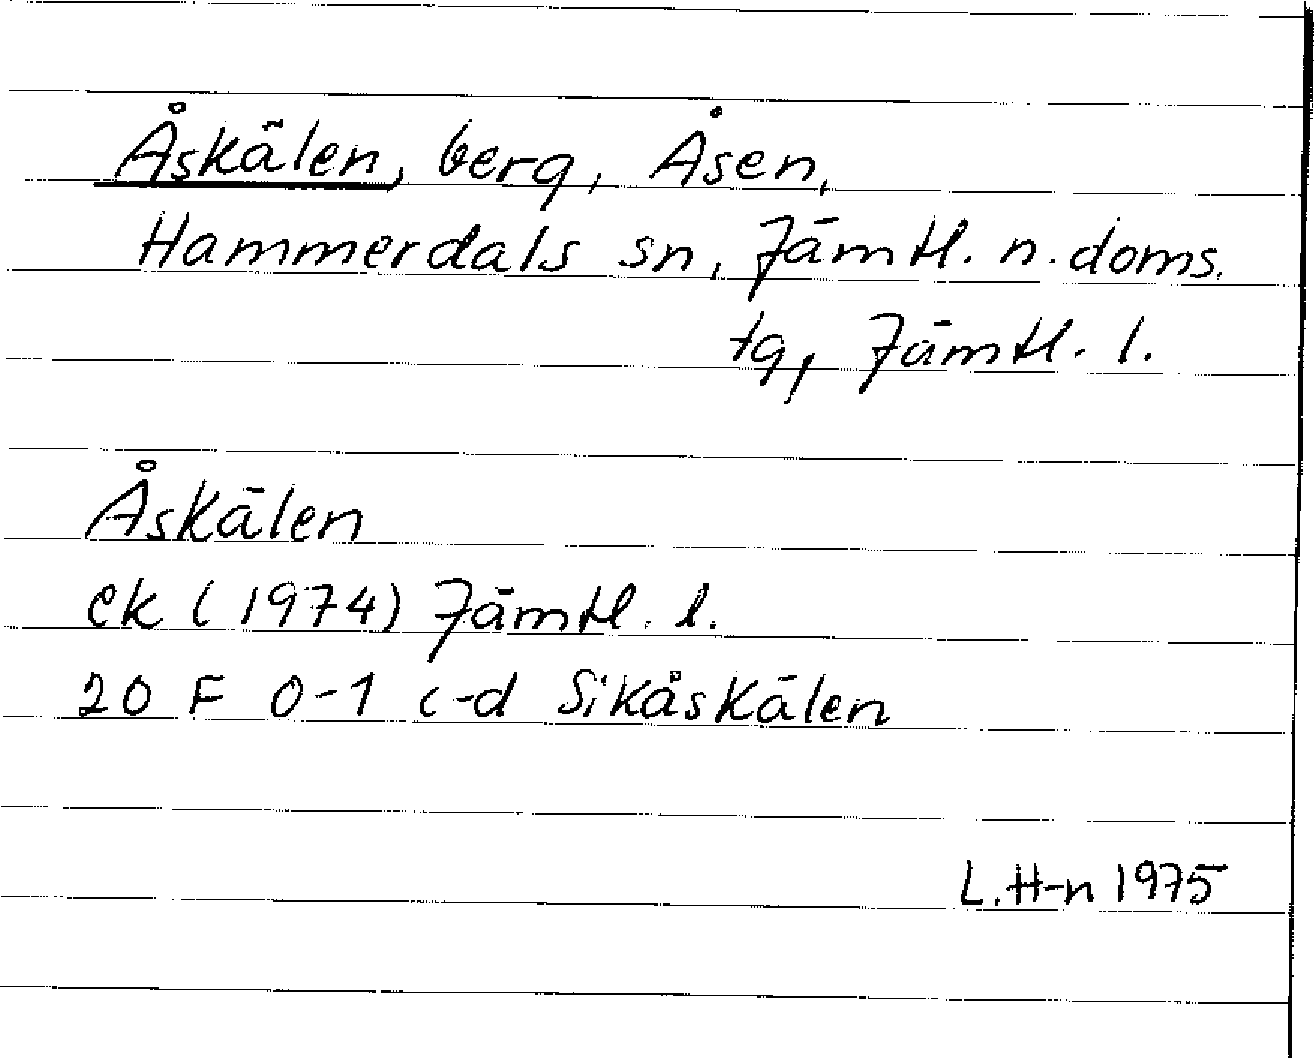 Åskälen, berg, Åsen,
Hammerdals sn, Jämtl. n. doms.
tg, Jämtl. l.
Åskälen
ek (1974) Jämtl. l.
20 F 0-1 c-d Sikåskälen
L. H-n 1975